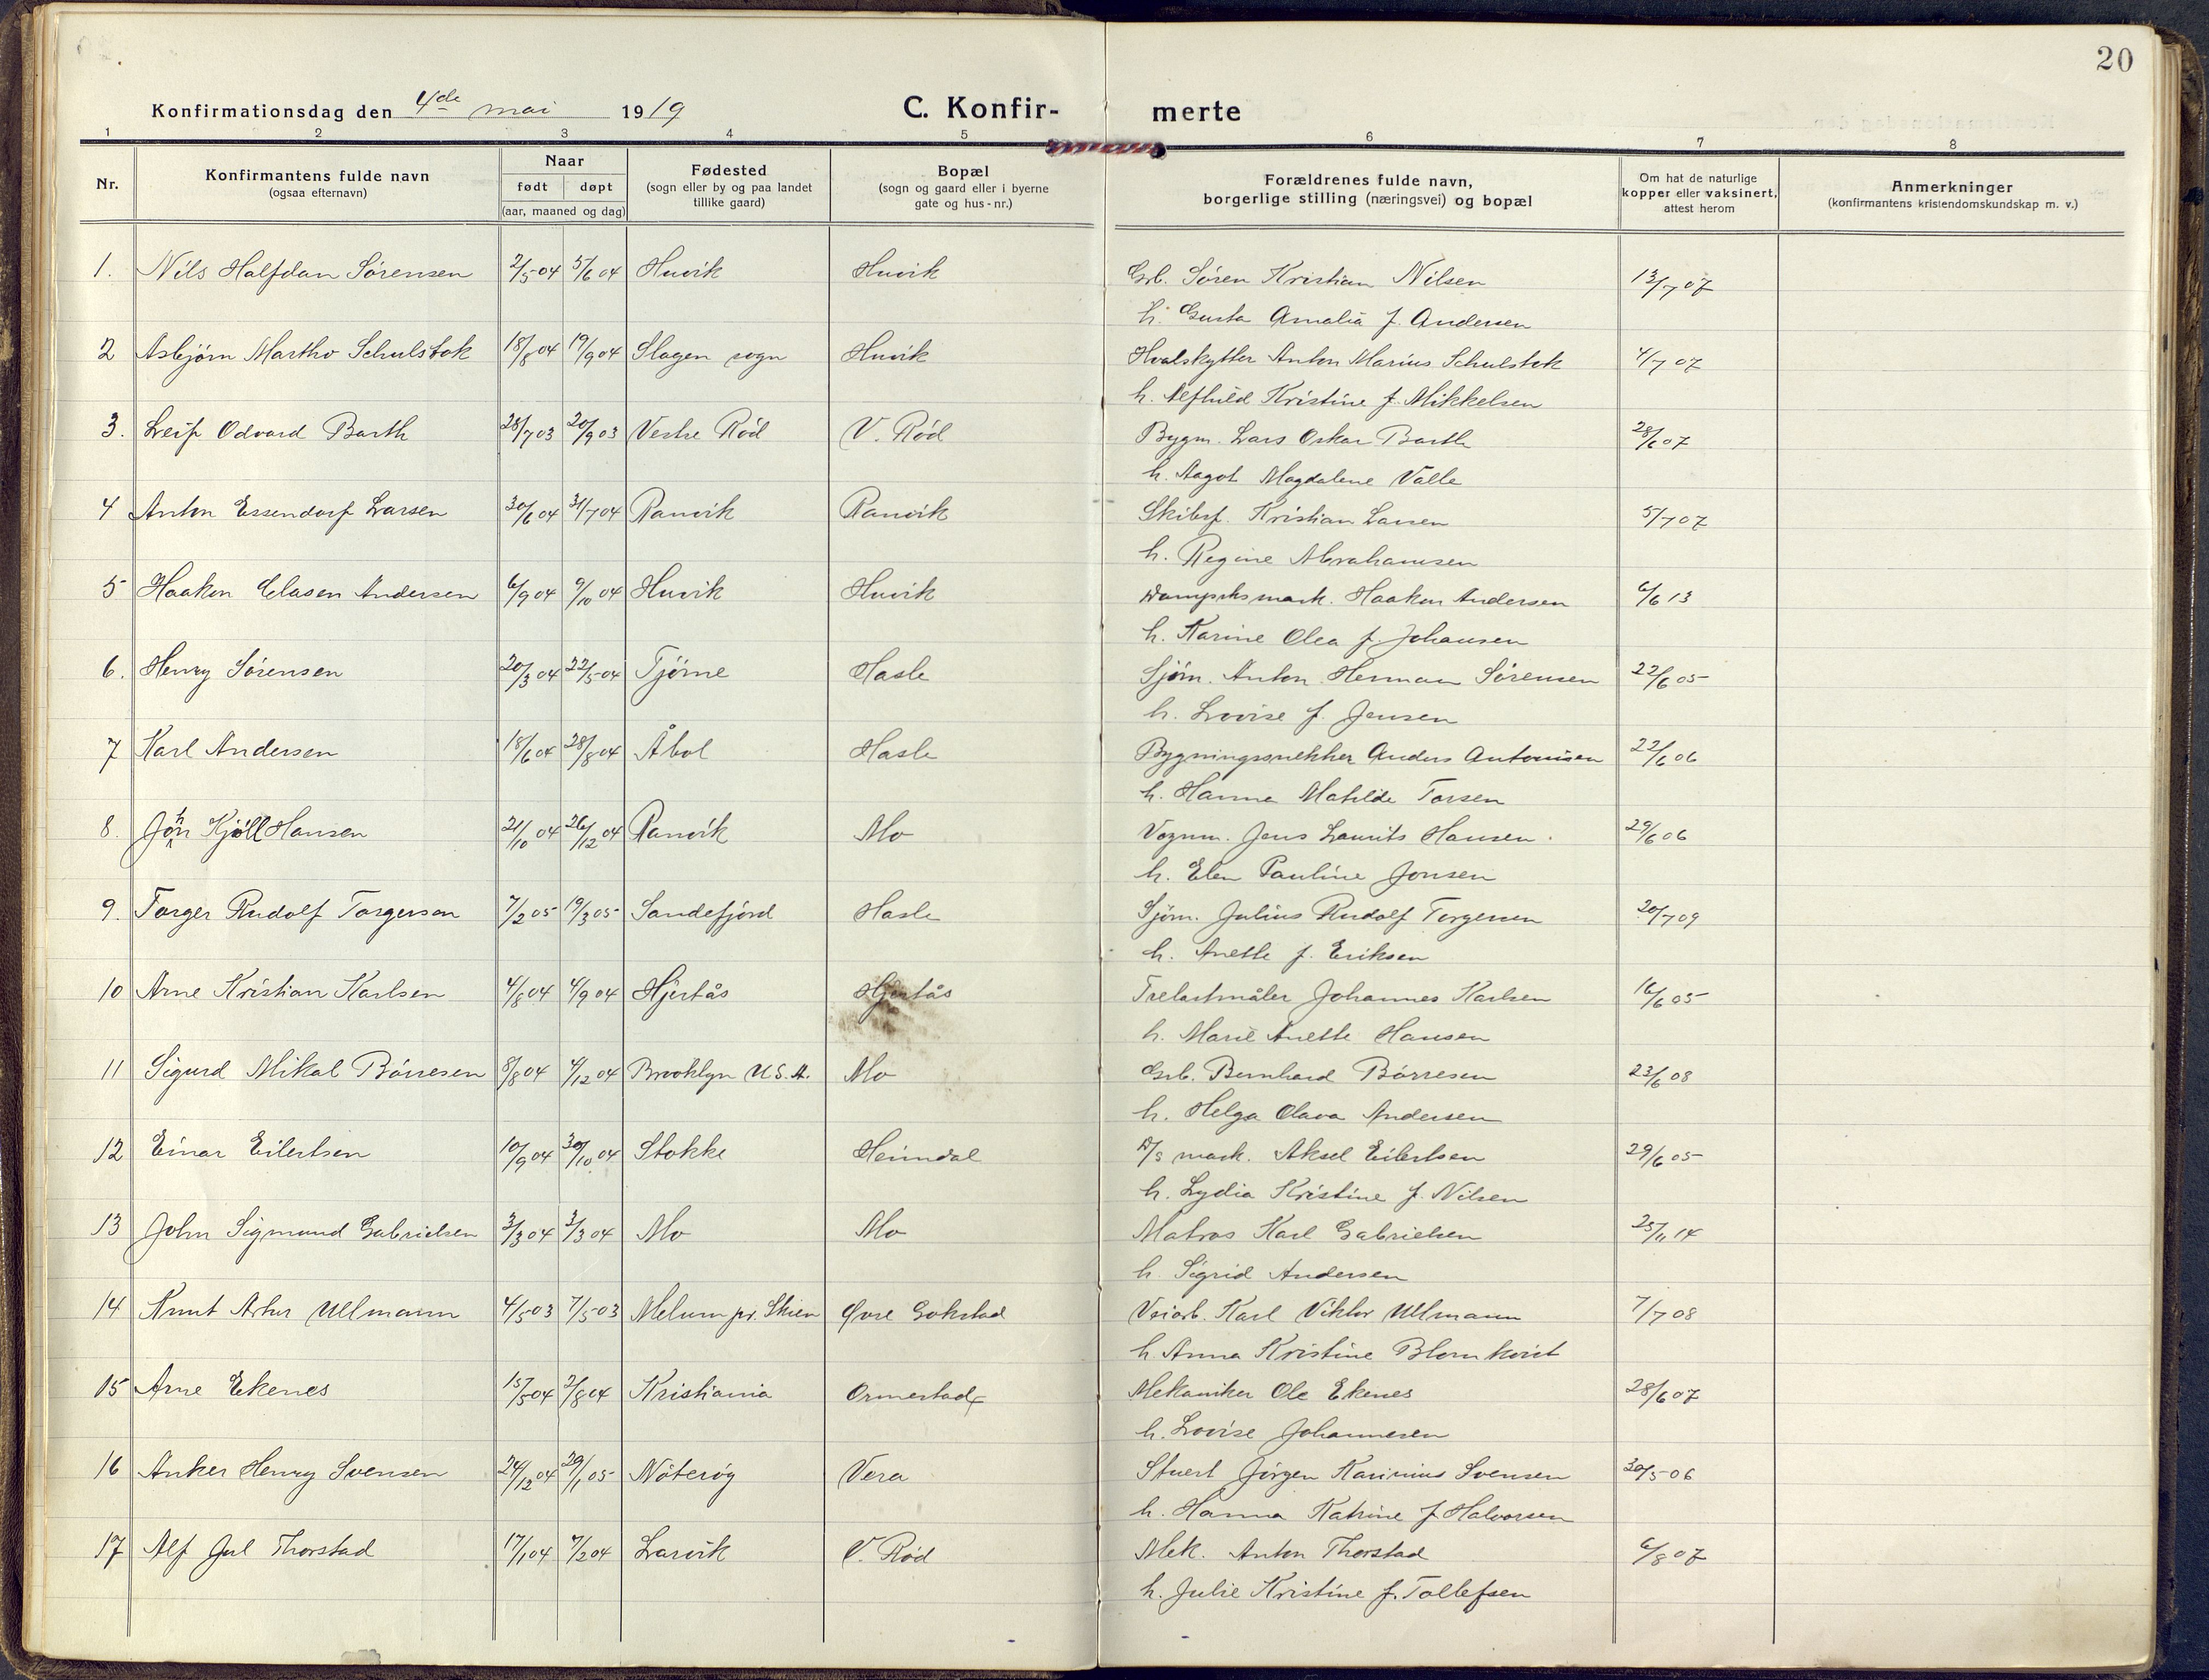 20
Konfirmationsdag den 4de mai 1919
C. Konfir- merte
1 2 3 4 5 6 7 8
Nr.
Konfirmantens fulde navn
(ogsaa efternavn)
Naar
født døpt
(aar, maaned og dag)
Fødested
(sogn eller by og paa landet
tillike gaard)
Bopæl
(sogn og gaard eller i byerne
gate og hus-nr.)
Forældrenes fulde navn,
borgerlige stilling (næringsvei) og bopæl
Om hat de naturlige
kopper eller vaksinert,
attest herom
Anmerkninger
(konfirmantens kristendomskundskap m. v.)
1. Nils Halfdan Sørensen 2/5 04 5/6 04 Huvik Huvik Grb. Søren Kristian Nilsen 13/7 07
h. Gusta Amalia f. Andersen
2 Asbjørn Martho Schulstok 18/8 04 19/9 04 Slagen sogn Huvik Hvalskytter Anton Marius Schulstok 4/7 07
h. Alfhild Kristine f. Mikkelsen
3. Leif Odvard Barth 28/7 03 20/9 03 Vestre Rød V. Rød Bygm. Lars Oskar Barth 28/6 07
h. Aagot Magdalene Valle
4 Anton Essendorf Larsen 30/6 04 31/7 04 Ranvik Ranvik Skibsf. Kristian Larsen 5/7 07
h. Regine Abrahamsen
5 Haakon Clasen Andersen 6/9 04 9/10 04 Huvik Huvik Dampsksmask. Haakon Andersen 6/6 13
h. Karine Olea f. Johansen
6. Henry Sørensen 20/3 04 22/5 04 Tjøme Hasle Sjøm. Anton Herman Sørensen 22/6 05
h. Lovise f. Jensen
7 Karl Andersen 18/6 04 28/8 04 Åbol Hasle Bygningssnekker Anders Antonisen 22/6 06
h. Hanna Matilde Torsen
8. John Kjøll Hansen 21/10 04 26/12 04 Ranvik Mo Vognm. Jens Laurits Hansen. 29/6 06
h. Elen Pauline Jonsen
9. Torger Rudolf Torgersen 7/2 05 19/3 05 Sandefjord Hasle Sjøm. Julius Rudolf Torgersen 20/7 09
h. Anette f. Eriksen
10 Arne Kristian Karlsen 4/8 04 4/9 04 Hjertås Hjertås Trelastmåler Johannes Karlsen 16/6 05
h. Marie Anette Hansen
11 Sigurd Mikal Børresen 8/8 04 4/12 04 Brooklyn U.S.A. Mo Grb. Bernhard Børresen 23/6 08
h. Helga Olava Andersen
12 Einar Eilertsen 10/9 04 30/10 04 Stokke Heimdal D/s mask. Aksel Eilertsen 29/6 05
h. Lydia Kristine f. Nilsen
13 John Sigmund Gabrielsen 3/3 04 3/3 04 Mo Mo Matros Karl Gabrielsen 25/11 14
h. Sigrid Andersen
14 Knut Artur Ullmann 4/5 03 7/5 03 Melum pr. Skien Øvre Gokstad Veiarb. Karl Viktor Ullmann 7/7 08
h. Anna Kristine Blomkvist
15 Arne Ekenes 15/5 04 2/8 04 Kristiania Ormestad Mekaniker Ole Ekenes 28/6 07
h. Lovise Johannesen
16 Anker Henry Svensen 24/12 04 29/1 05 Nøterøy Vera Stuert Jørgen Svensen 30/5 06
h. Hanna Katrine f Halvorsen
17 Alf Jul Thorstad 17/1 04 7/2 04 Larvik V. Rød Mek. Anton Thorstad 6/8 07
h. Julie Kristine f. Tollefsen